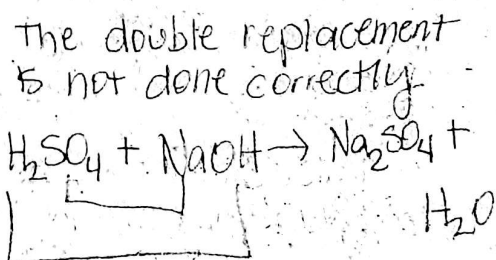 The double replacement
is not done correctly.
H₂SO₄ + NaOH → Na₂SO₄ +
H₂O